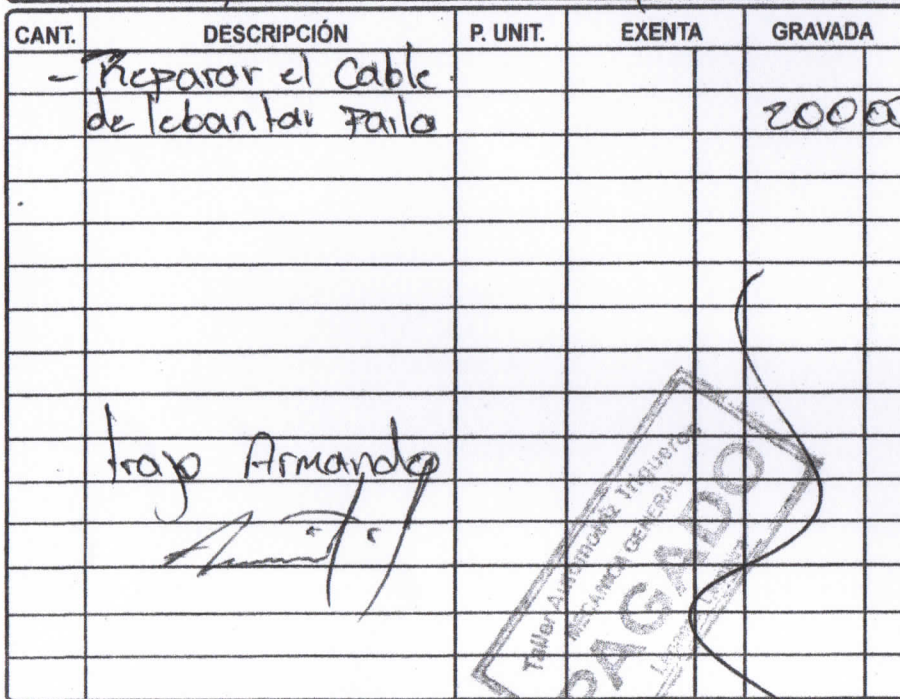 CANT. DESCRIPCIÓN P. UNIT. EXENTA GRAVADA
- Reparar el Cable
de lebantar Paila 20000
trajo Armando
Taller Automotriz Trigueros
MECANICA GENERAL
PAGADO